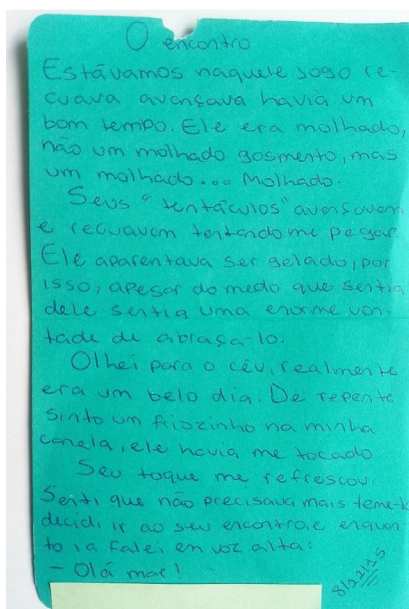 O encontro
Estávamos naquele jogo re-
cuava avançava havia um
bom tempo. Ele era molhado,
não um molhado gosmento, mas
um molhado... Molhado.
Seus "tentáculos" avançavam
e recuavam tentando me pegar.
Ele aparentava ser gelado, por
isso, apesar do medo que sentia
dele sentia uma enorme von-
tade de abraça-lo.
Olhei para o céu, realmente
era um belo dia. De repente
sinto um friozinho na minha
canela, ele havia me tocado.
Seu toque me refrescou.
Senti que não precisava mais teme-lo
decidi ir ao seu encontro, e enquan-
to ia falei em voz alta:
- Olá mar!
8/22/15